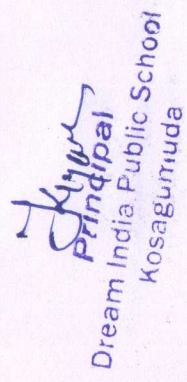 Principal
Dream India Public School
Kosagumuda